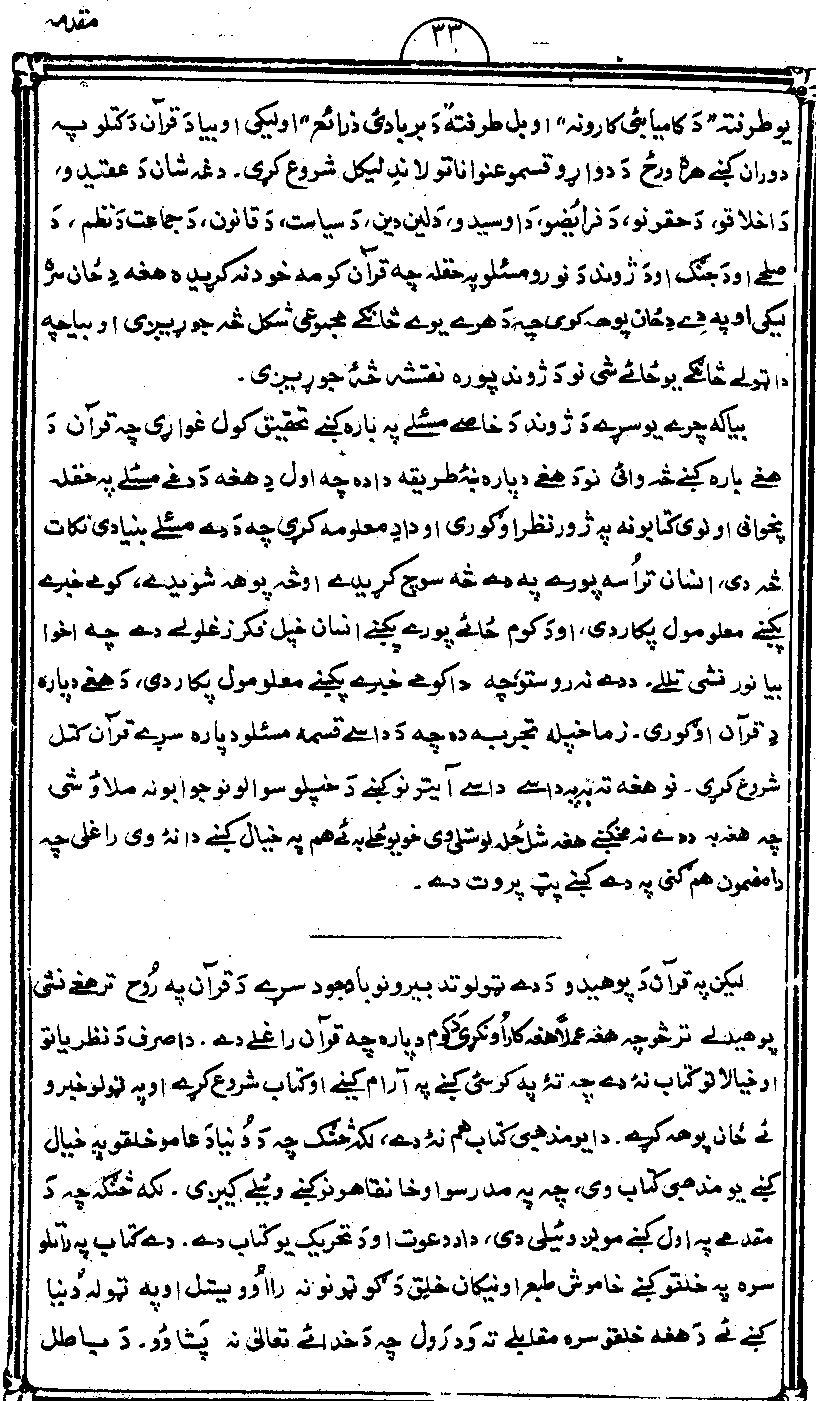 مقدمه
۳۳
یو طرفته "دَ کامیابئ کارونه" او بل طرفته "دَ بربادئ ذرائع" اولیکی او بیا دَ قرآن دَ کتلو په
دوران کښے هرهٔ ورځ دَ دواړو قسمو عنواناتو لاندِ لیکل شروع کړی۔ دغه شان دَ عقیدو،
دَ اخلاقو، دَ حقونو، دَ فرائضو، دَ اوسیدو، دَ لین دین، دَ سیاست، دَ قانون، دَ جماعت دَ نظم، دَ
صلحے او دَ جنگ او دَ ژوند دَ نورو مسئلو په حقله چه قرآن کومه خودنه کړیده هغه دِ ځان سره
لیکی او په دے دِ ځان پوهه کوی چه دَ هرے یوے څانګے مجموعی شکل څه جوړیږی او بیا چه
دا ټولے څانګے یو ځائے شی نو دَ ژوند پوره نقشه څهٔ جوړیږی۔
بیا که چرے یو سړے دَ ژوند دَ خاصے مسئلے په باره کښے تحقیق کول غواړی چه قرآن دَ
هغے باره کښے څه وائی نو دَ هغے دپاره ښهٔ طریقه دا ده چه اول دِ هغه دَ دغے مسئلے په حقله
پخوانی او نوی کتابونه په ژور نظر اوګوری او دا دِ معلومه کړی چه دَ دے مسئلے بنیادی نکات
څه دی، انسان تر اُسه پورے په دے څه سوچ کړیدے او څه پوهه شویدے، کومے خبرے
پکښے معلومول پکار دی، او دَ کوم ځائے پورے پکښے انسان خپل فکر زغلولے دے چه اخوا
بیا نور نشی تللے۔ ددے نه روستو چه دا کومے خبرے پکښے معلومول پکار دی، دَ هغے دپاره
دِ قرآن اوګوری۔ زما خپله تجربه ده چه دَ داسے قسمه مسئلو دپاره سړے قرآن کتل
شروع کړی۔ نو هغه ته به په داسے داسے آیتونو کښے دَ خپلو سوالونو جوابونه ملاؤ شی
چه هغه به ددے نه مخکښے هغه شل ځله لوستلی وی خو یو ځلے به ئے هم په خیال کښے دا نهٔ وی راغلی چه
دا مضمون هم ګنی په دے کښے پټ پروت دے۔
لیکن په قرآن دَ پوهیدو دَ دے ټولو تدبیرونو باوجود سړے دَ قرآن په رُوح تر هغے نشی
پوهیدلے تر څو چه هغه عملاً هغه کار اُونکړی دَ کوم دپاره چه قرآن راغلے دے۔ دا صرف دَ نظریاتو
او خیالاتو کتاب نهٔ دے چه تهٔ په کرسئ کښے په آرام کښے او کتاب شروع کړے او په ټولو خبرو
ئے ځان پوهه کړے۔ دا یو مذهبی کتاب هم نهٔ دے، لکه څنګ چه دَ دُنیا دَ عامو خلقو په خیال
کښے یو مذهبی کتاب وی، چه په مدرسو او خانقاهونو کښے وئیلے کیږی۔ لکه څنګه چه دَ
مقدمے په اول کښے مو وئیلی دی، دا دَ دعوت او دَ تحریک یو کتاب دے۔ دے کتاب په راتلو
سره په خلقو کښے خاموش طبع او نیکان خلق دَ کوټونو نه را اُوویستل او په ټوله دُنیا
کښے ئے دَ هغه خلقو سره مقابلے ته وَدرول چه دَ خدائے تعالیٰ نه پَشا وُو۔ دَ باطل